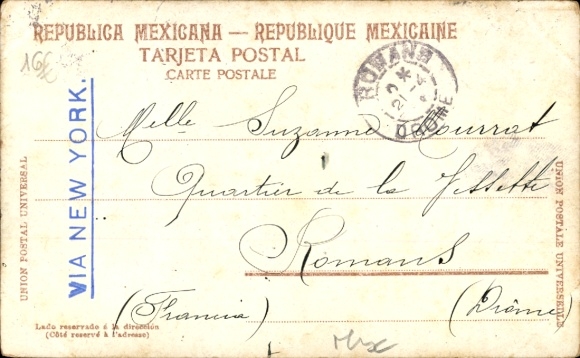 REPUBLICA MEXICANA — REPUBLIQUE MEXICAINE
TARJETA POSTAL
CARTE POSTALE
16€
ROMANS
DROME
VIA NEW YORK.
UNION POSTAL UNIVERSAL
UNION POSTALE UNIVERSELLE
Melle Suzanne Courrat
Quartier de la
Romans
(Francia) (Drôme)
Lado reservado á la dirección
(Côté reservé à l'adresse)